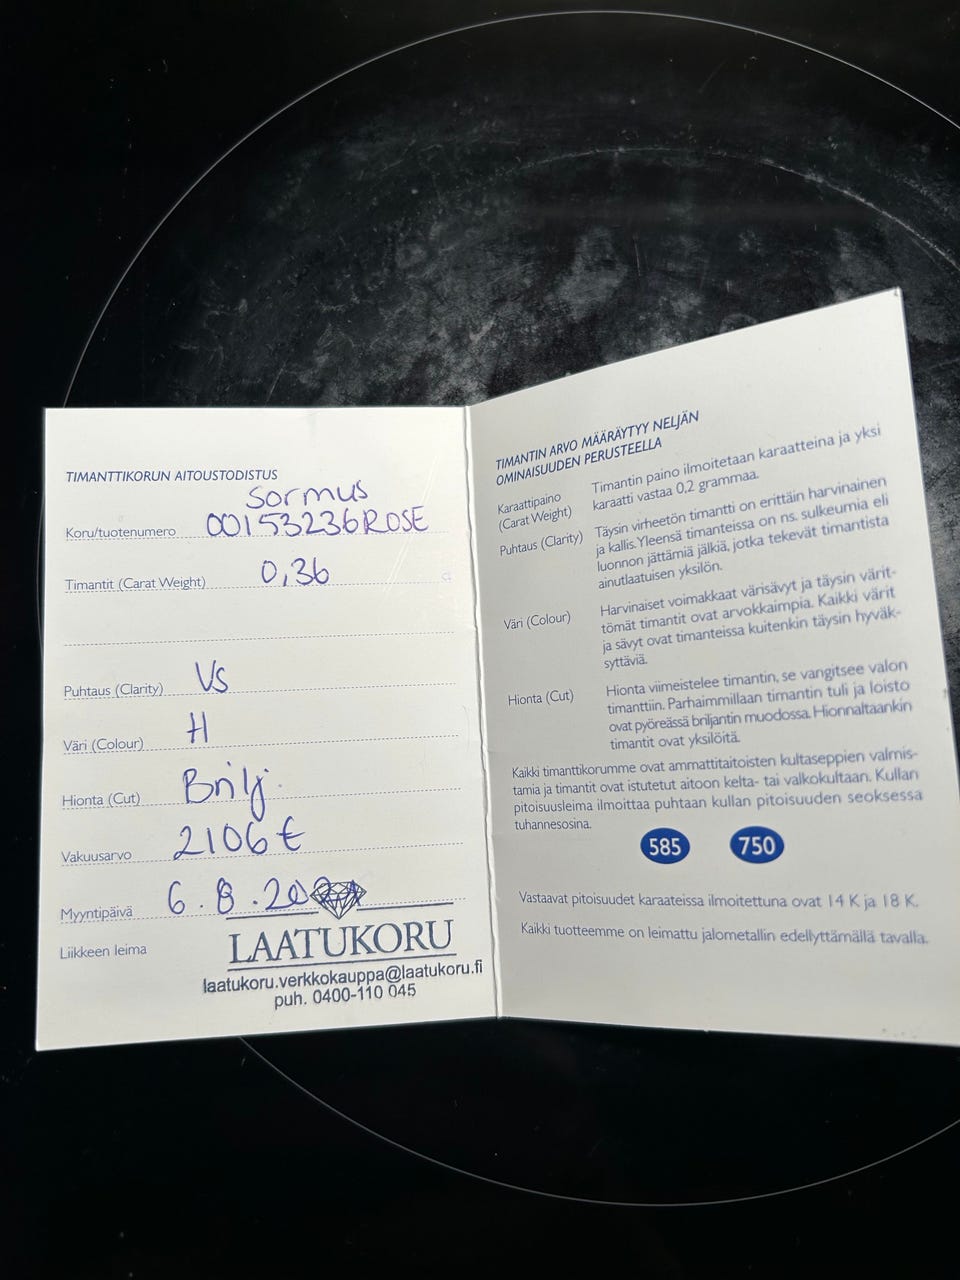 TIMANTTIKORUN AITOUSTODISTUS
Sormus
Koru/tuotenumero 00153236ROSE
Timantit (Carat Weight) 0,36
Puhtaus (Clarity) Vs
Väri (Colour) H
Hionta (Cut) Brilj.
Vakuusarvo 2106 €
Myyntipäivä 6.8.20
Liikkeen leima
LAATUKORU
laatukoru.verkkokauppa@laatukoru.fi
puh. 0400-110 045
TIMANTIN ARVO MÄÄRÄYTYY NELJÄN
OMINAISUUDEN PERUSTEELLA
Karaattipaino
(Carat Weight)
Timantin paino ilmoitetaan karaatteina ja yksi
karaatti vastaa 0,2 grammaa.
Puhtaus (Clarity)
Täysin virheetön timantti on erittäin harvinainen
ja kallis. Yleensä timanteissa on ns. sulkeumia eli
luonnon jättämiä jälkiä, jotka tekevät timantista
ainutlaatuisen yksilön.
Väri (Colour)
Harvinaiset voimakkaat värisävyt ja täysin värit-
tömät timantit ovat arvokkaimpia. Kaikki värit
ja sävyt ovat timanteissa kuitenkin täysin hyväk-
syttäviä.
Hionta (Cut)
Hionta viimeistelee timantin, se vangitsee valon
timanttiin. Parhaimmillaan timantin tuli ja loisto
ovat pyöreässä briljantin muodossa. Hionnaltaankin
timantit ovat yksilöitä.
Kaikki timanttikorumme ovat ammattitaitoisten kultaseppien valmis-
tamia ja timantit ovat istutetut aitoon kelta- tai valkokultaan. Kullan
pitoisuusleima ilmoittaa puhtaan kullan pitoisuuden seoksessa
tuhannesosina.
585 750
Vastaavat pitoisuudet karaateissa ilmoitettuna ovat 14 K ja 18 K.
Kaikki tuotteemme on leimattu jalometallin edellyttämällä tavalla.